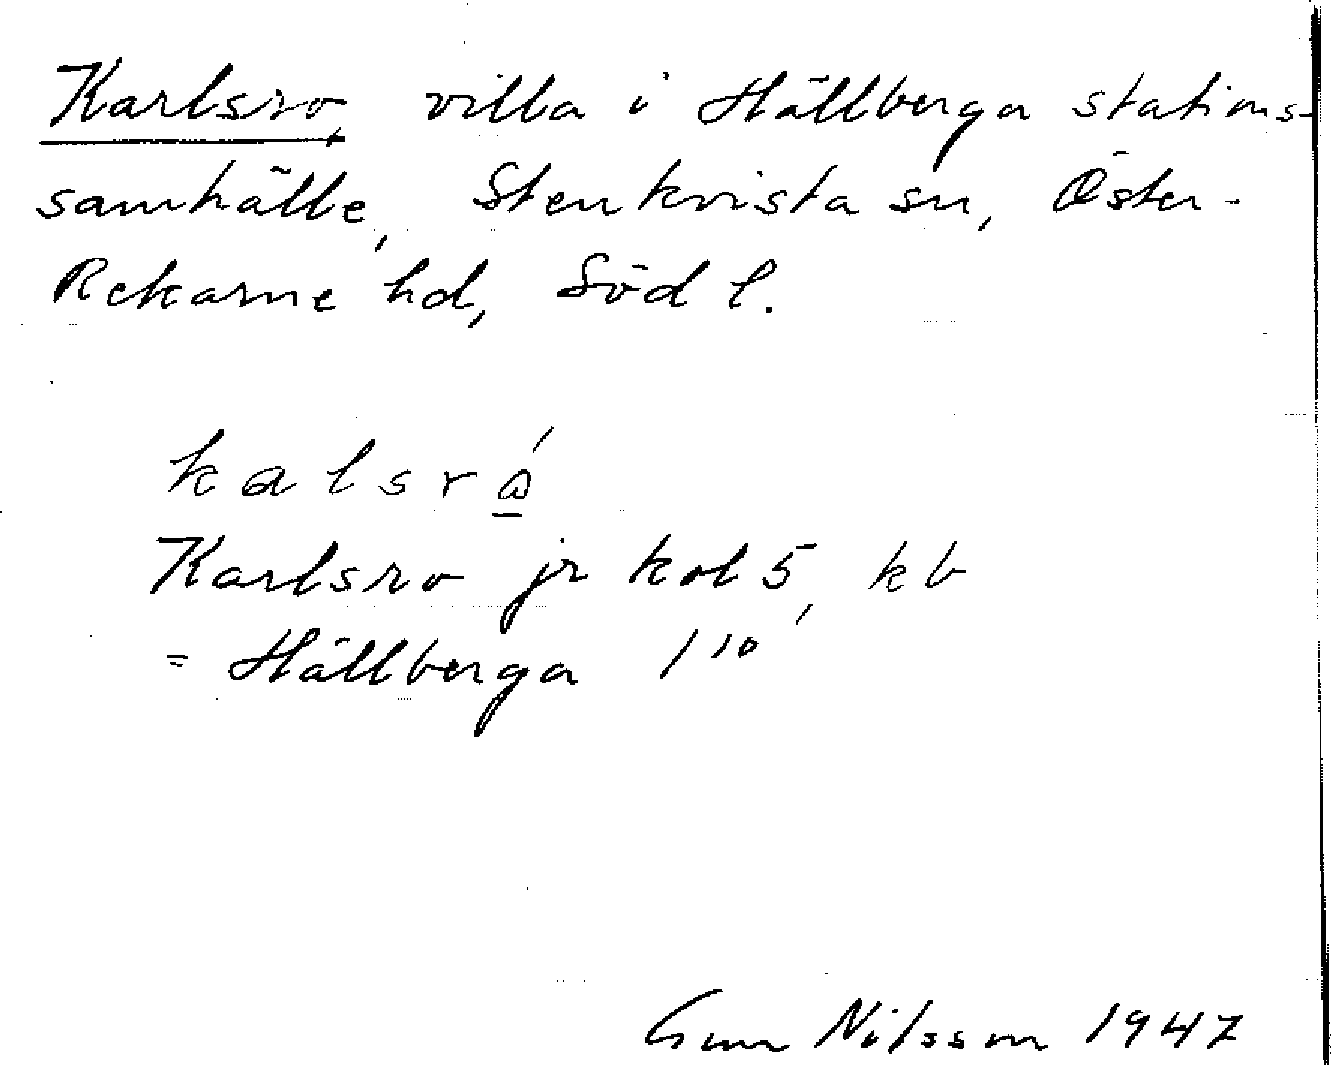 Karlsro, villa i Hällberga stations-
samhälle, Stenkvista sn, Öster-
Rekarne hd, Söd l.
kalsrǻ
Karlsro jr kol 5, kb
= Hällberga 1 10
Gun Nilsson 1947